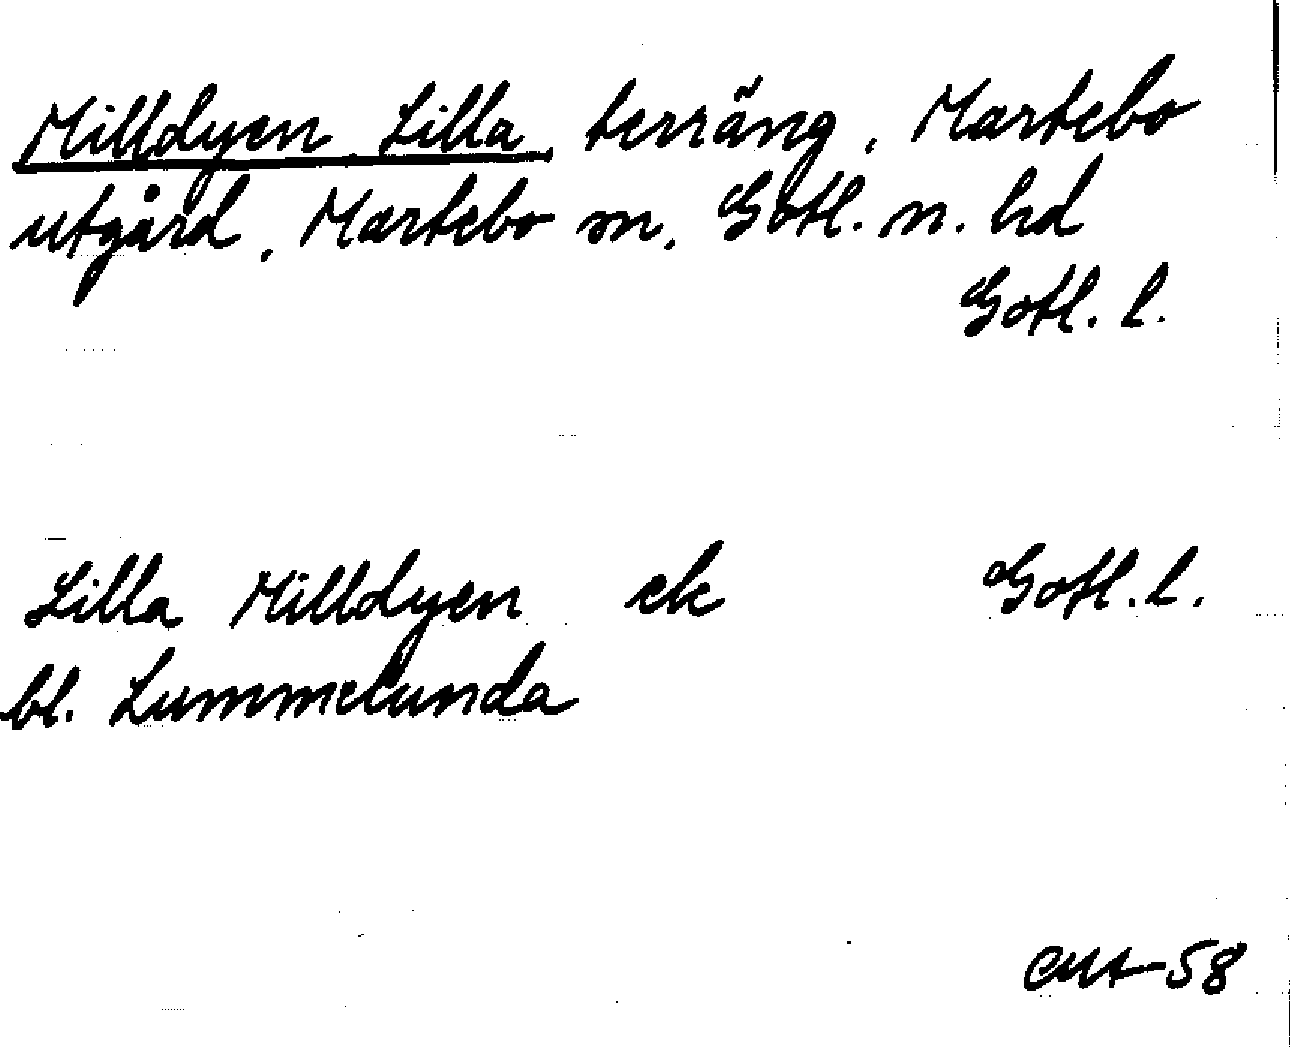 Milldyen, Lilla, terräng, Martebo
utgård, Martebo sn, Gotl. n. hd
Gotl. l.
Lilla Milldyen ek Gotl. l.
bl. Lummelunda
58